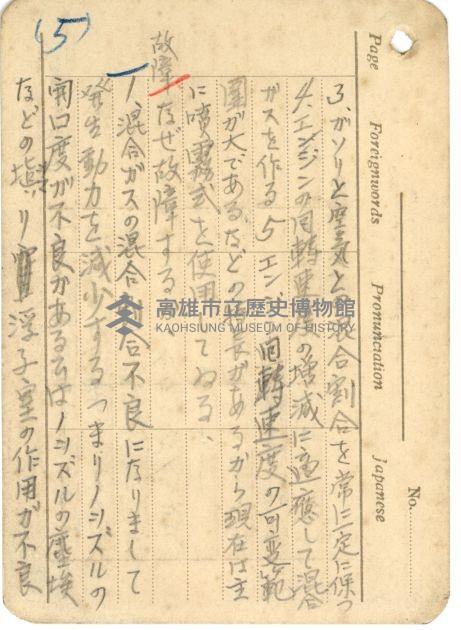 (5)
No.
Page Foreignwords Pronunciation Japanese
3、ガソリと空気との混合割合を常に一定に保つ
4、エンジンの回轉速度の増減に適應して混合
ガスを作る 5 エン 回轉速度の可変範
圍が大である、などの特長があるから現在は主
に噴霧式を使用してゐる、
故障 なぜ故障する
1、混合ガスの混合割合不良になりまして
発生動力を減少するつまりノズルの
開口度が不良がある又はノズルの塵埃
などの塡り 浮子室の作用が不良
高雄市立歷史博物館
KAOHSIUNG MUSEUM OF HISTORY